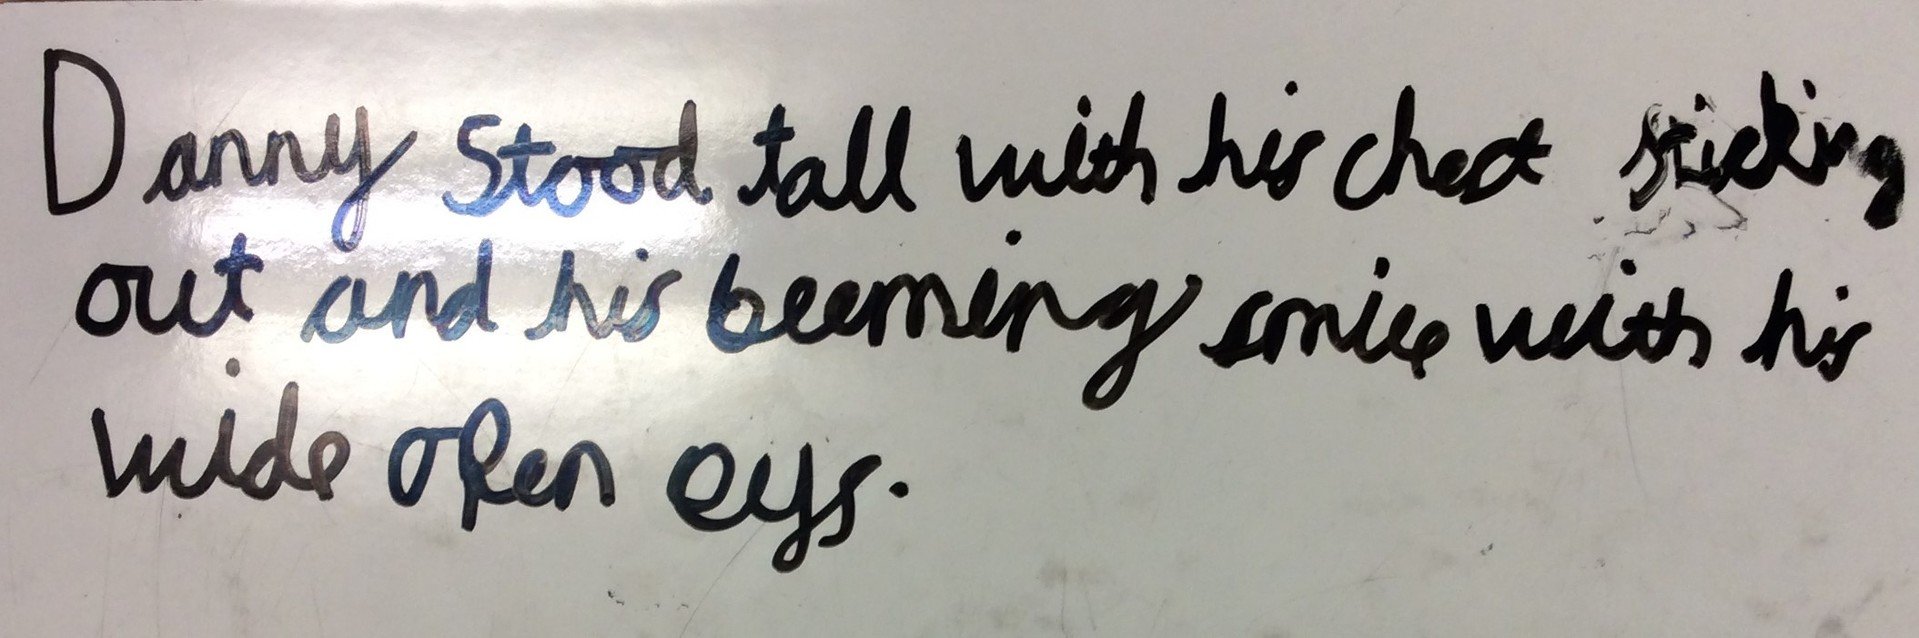 Danny Stood tall with his chest sticking
out and his beeming smile with his
wide open eys.